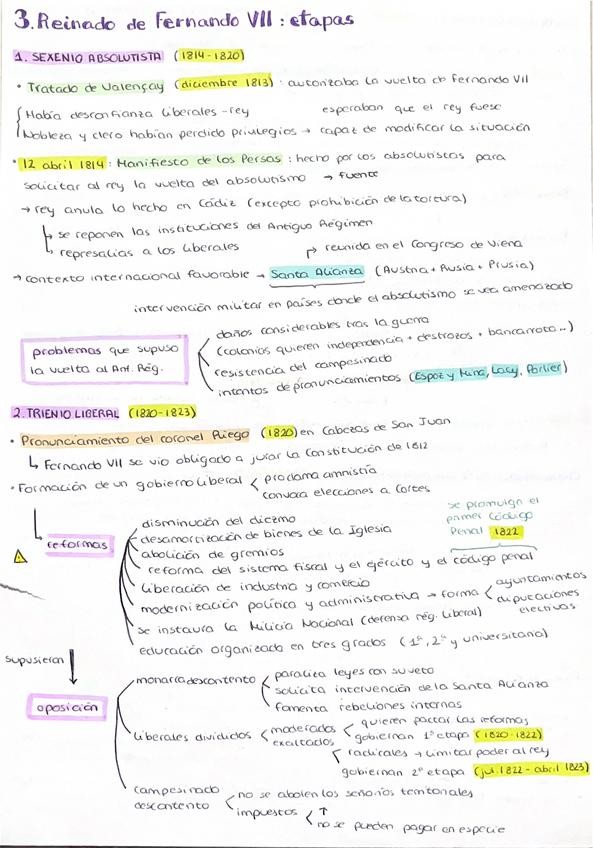 3. Reinado de Fernando VII : etapas
1. SEXENIO ABSOLUTISTA (1814-1820)
• Tratado de Valençay (diciembre 1813) : autorizaba la vuelta de Fernando VII
Había desconfianza liberales - rey esperaban que el rey fuese
Nobleza y clero habían perdido privilegios → capaz de modificar la situación
• 12 abril 1814 : Manifiesto de los Persas : hecho por los absolutistas para
solicitar al rey la vuelta del absolutismo → fuente
→ rey anula lo hecho en Cádiz (excepto prohibición de la tortura)
↳ se reponen las instituciones del Antiguo Régimen
↳ represalias a los liberales
↱ reunida en el Congreso de Viena
→ contexto internacional favorable → Santa Alianza (Austria + Rusia + Prusia)
intervención militar en países donde el absolutismo se vea amenazado
problemas que supuso
la vuelta al Ant. Rég.
daños considerables tras la guerra
(colonias quieren independencia + destrozos + bancarrota...)
resistencia del campesinado
intentos de pronunciamientos (Espoz y Mina, Lacy, Porlier)
2. TRIENIO LIBERAL (1820-1823)
• Pronunciamiento del coronel Riego (1820) en Cabezas de San Juan
↳ Fernando VII se vio obligado a jurar la Constitución de 1812
• Formación de un gobierno liberal
proclama amnistía
convoca elecciones a Cortes
reformas
disminución del diezmo
desamortización de bienes de la Iglesia
abolición de gremios
reforma del sistema fiscal y el ejército y el código penal
se promulga el
primer Código
Penal 1822
liberación de industria y comercio
modernización política y administrativa → forma
ayuntamientos
diputaciones
electivas
se instaura la Milicia Nacional (defensa rég. liberal)
educación organizada en tres grados (1ª, 2ª y universitaria)
supusieron
oposición
monarca descontento
paraliza leyes con su veto
solicita intervención de la Santa Alianza
fomenta rebeliones internas
liberales divididos
moderados
quieren pactar las reformas
gobiernan 1ª etapa (1820-1822)
exaltados
radicales → limitar poder al rey
gobiernan 2ª etapa (jul. 1822 - abril 1823)
campesinado
descontento
no se abolen los señoríos territoriales
impuestos
↑
no se pueden pagar en especie